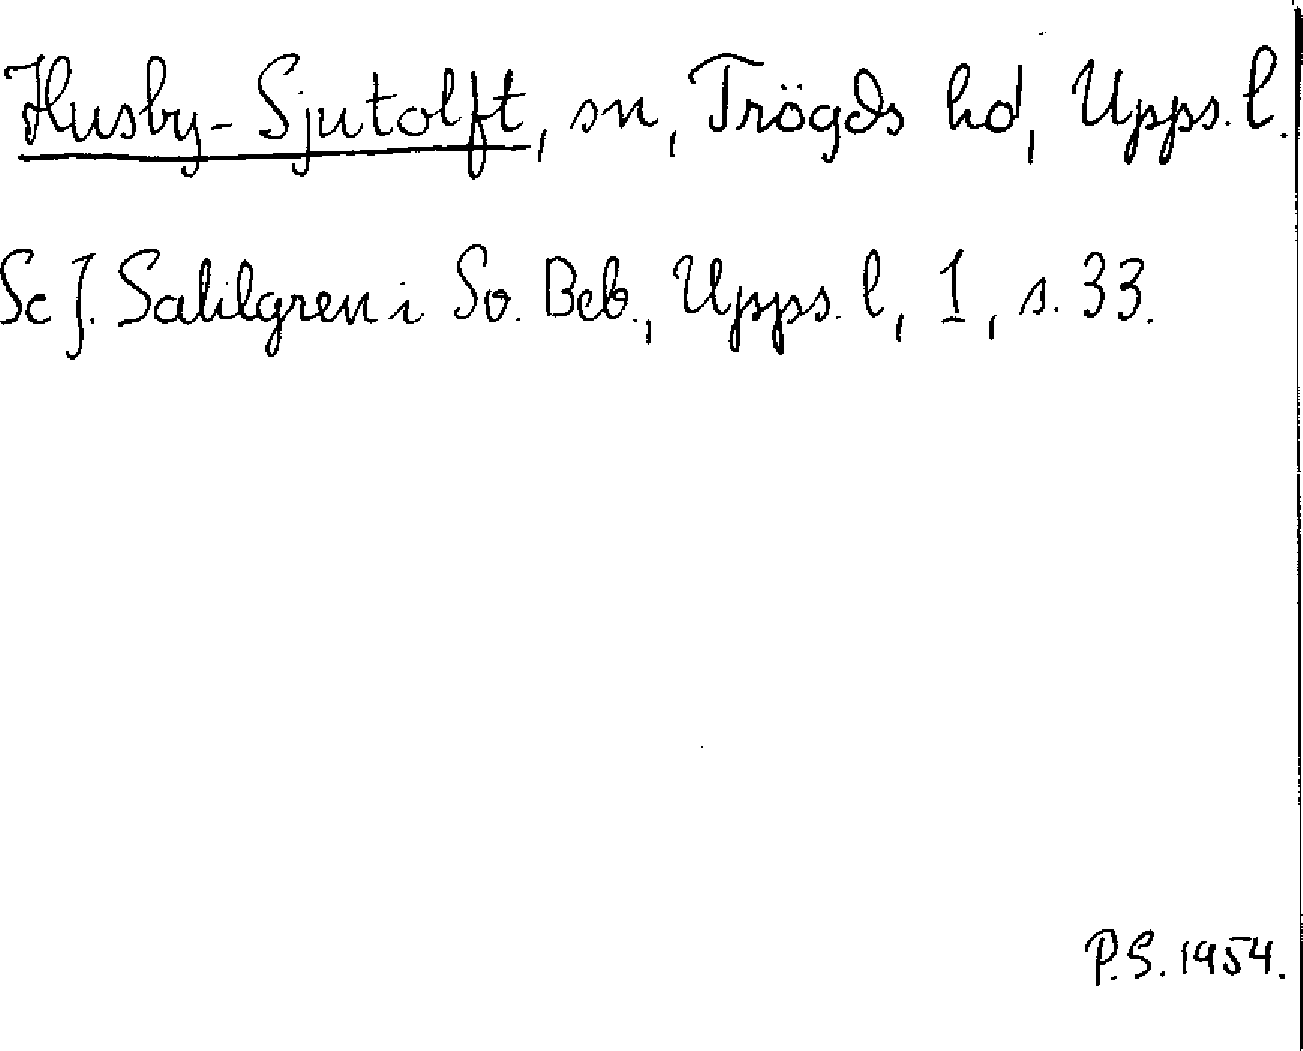 Husby-Sjutolft, sn, Trögds hd, Upps. l.
Se J. Sahlgren i Sv. Beb., Upps. l, 1, s. 33.
P.S. 1954.